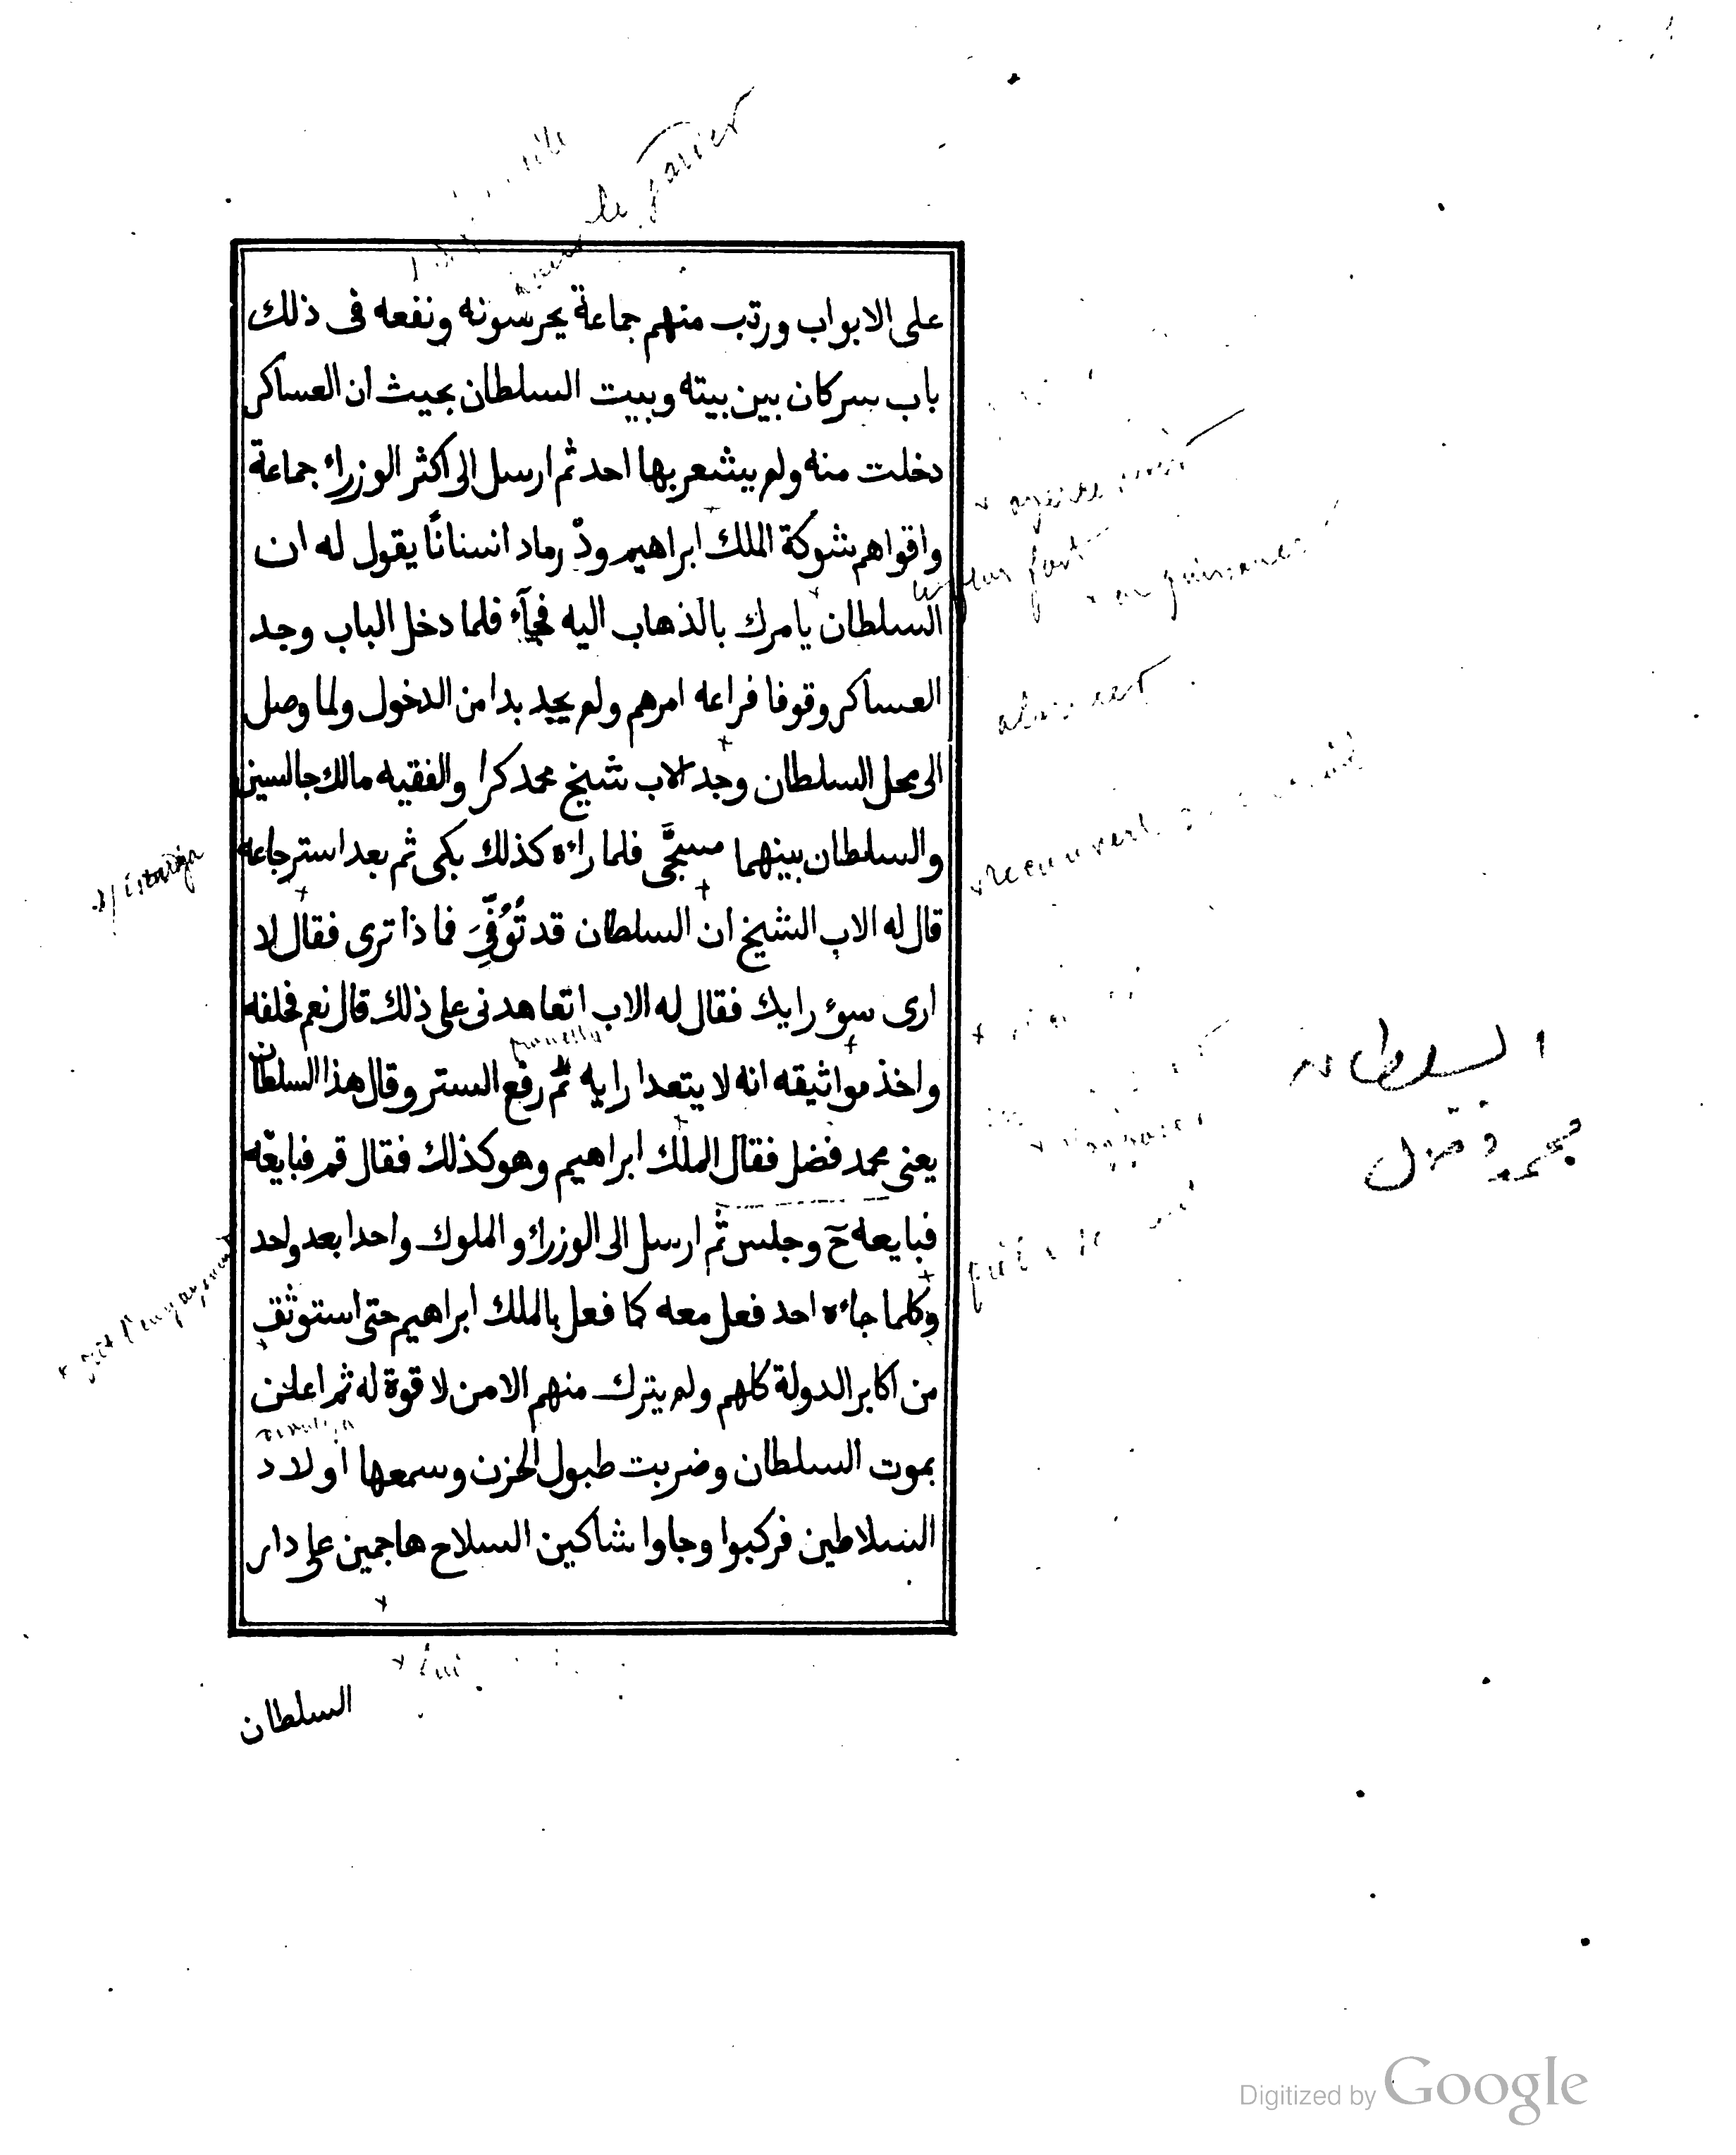 على الابواب ورتب منهم جماعة يحرسونه ونفعه فى ذلك
باب سركان بين بيته وبيت السلطان بحيث ان العساكر
دخلت منه ولم يشعر بها احد ثم ارسل الى اكثر الوزراء جماعة
واقواهم شوكة الملك ابراهيم ودّ رماد انسانًا يقول له ان
السلطان يامرك بالذهاب اليه فجآء فلما دخل الباب وجد
العساكر وقوفا فراعه امرهم ولم يجد بدا من الدخول ولما وصل
الى محل السلطان وجد الاب شيخ محمد كرا والفقيه مالك جالسين
والسلطان بينهما مسجَّى فلما راءه كذلك بكى ثم بعد استرجاعه
قال له الاب الشيخ ان السلطان قد تُوُفِّيَ فماذا ترى فقال لا
ارى سوء رايك فقال له الاب اتعاهدنى على ذلك قال نعم فحلفه
واخذ مواثيقه انه لا يتعدا رايه ثم رفع الستر وقال هذا السلطان
يعنى محمد فضل فقال الملك ابراهيم وهو كذلك فقال قم فبايعه
فبايعه حٓ وجلس ثم ارسل الى الوزراء والملوك واحدا بعد واحد
وكلما جاءه احد فعل معه كما فعل بالملك ابراهيم حتى استوثق
من اكابر الدولة كلهم ولم يترك منهم الا من لا قوة له ثم اعلن
بموت السلطان وضربت طبول الحزن وسمعها اولاد
السلاطين فركبوا وجاوا شاكين السلاح هاجمين على دار
السلطان
السلطان
محمد فضل
Digitized by Google